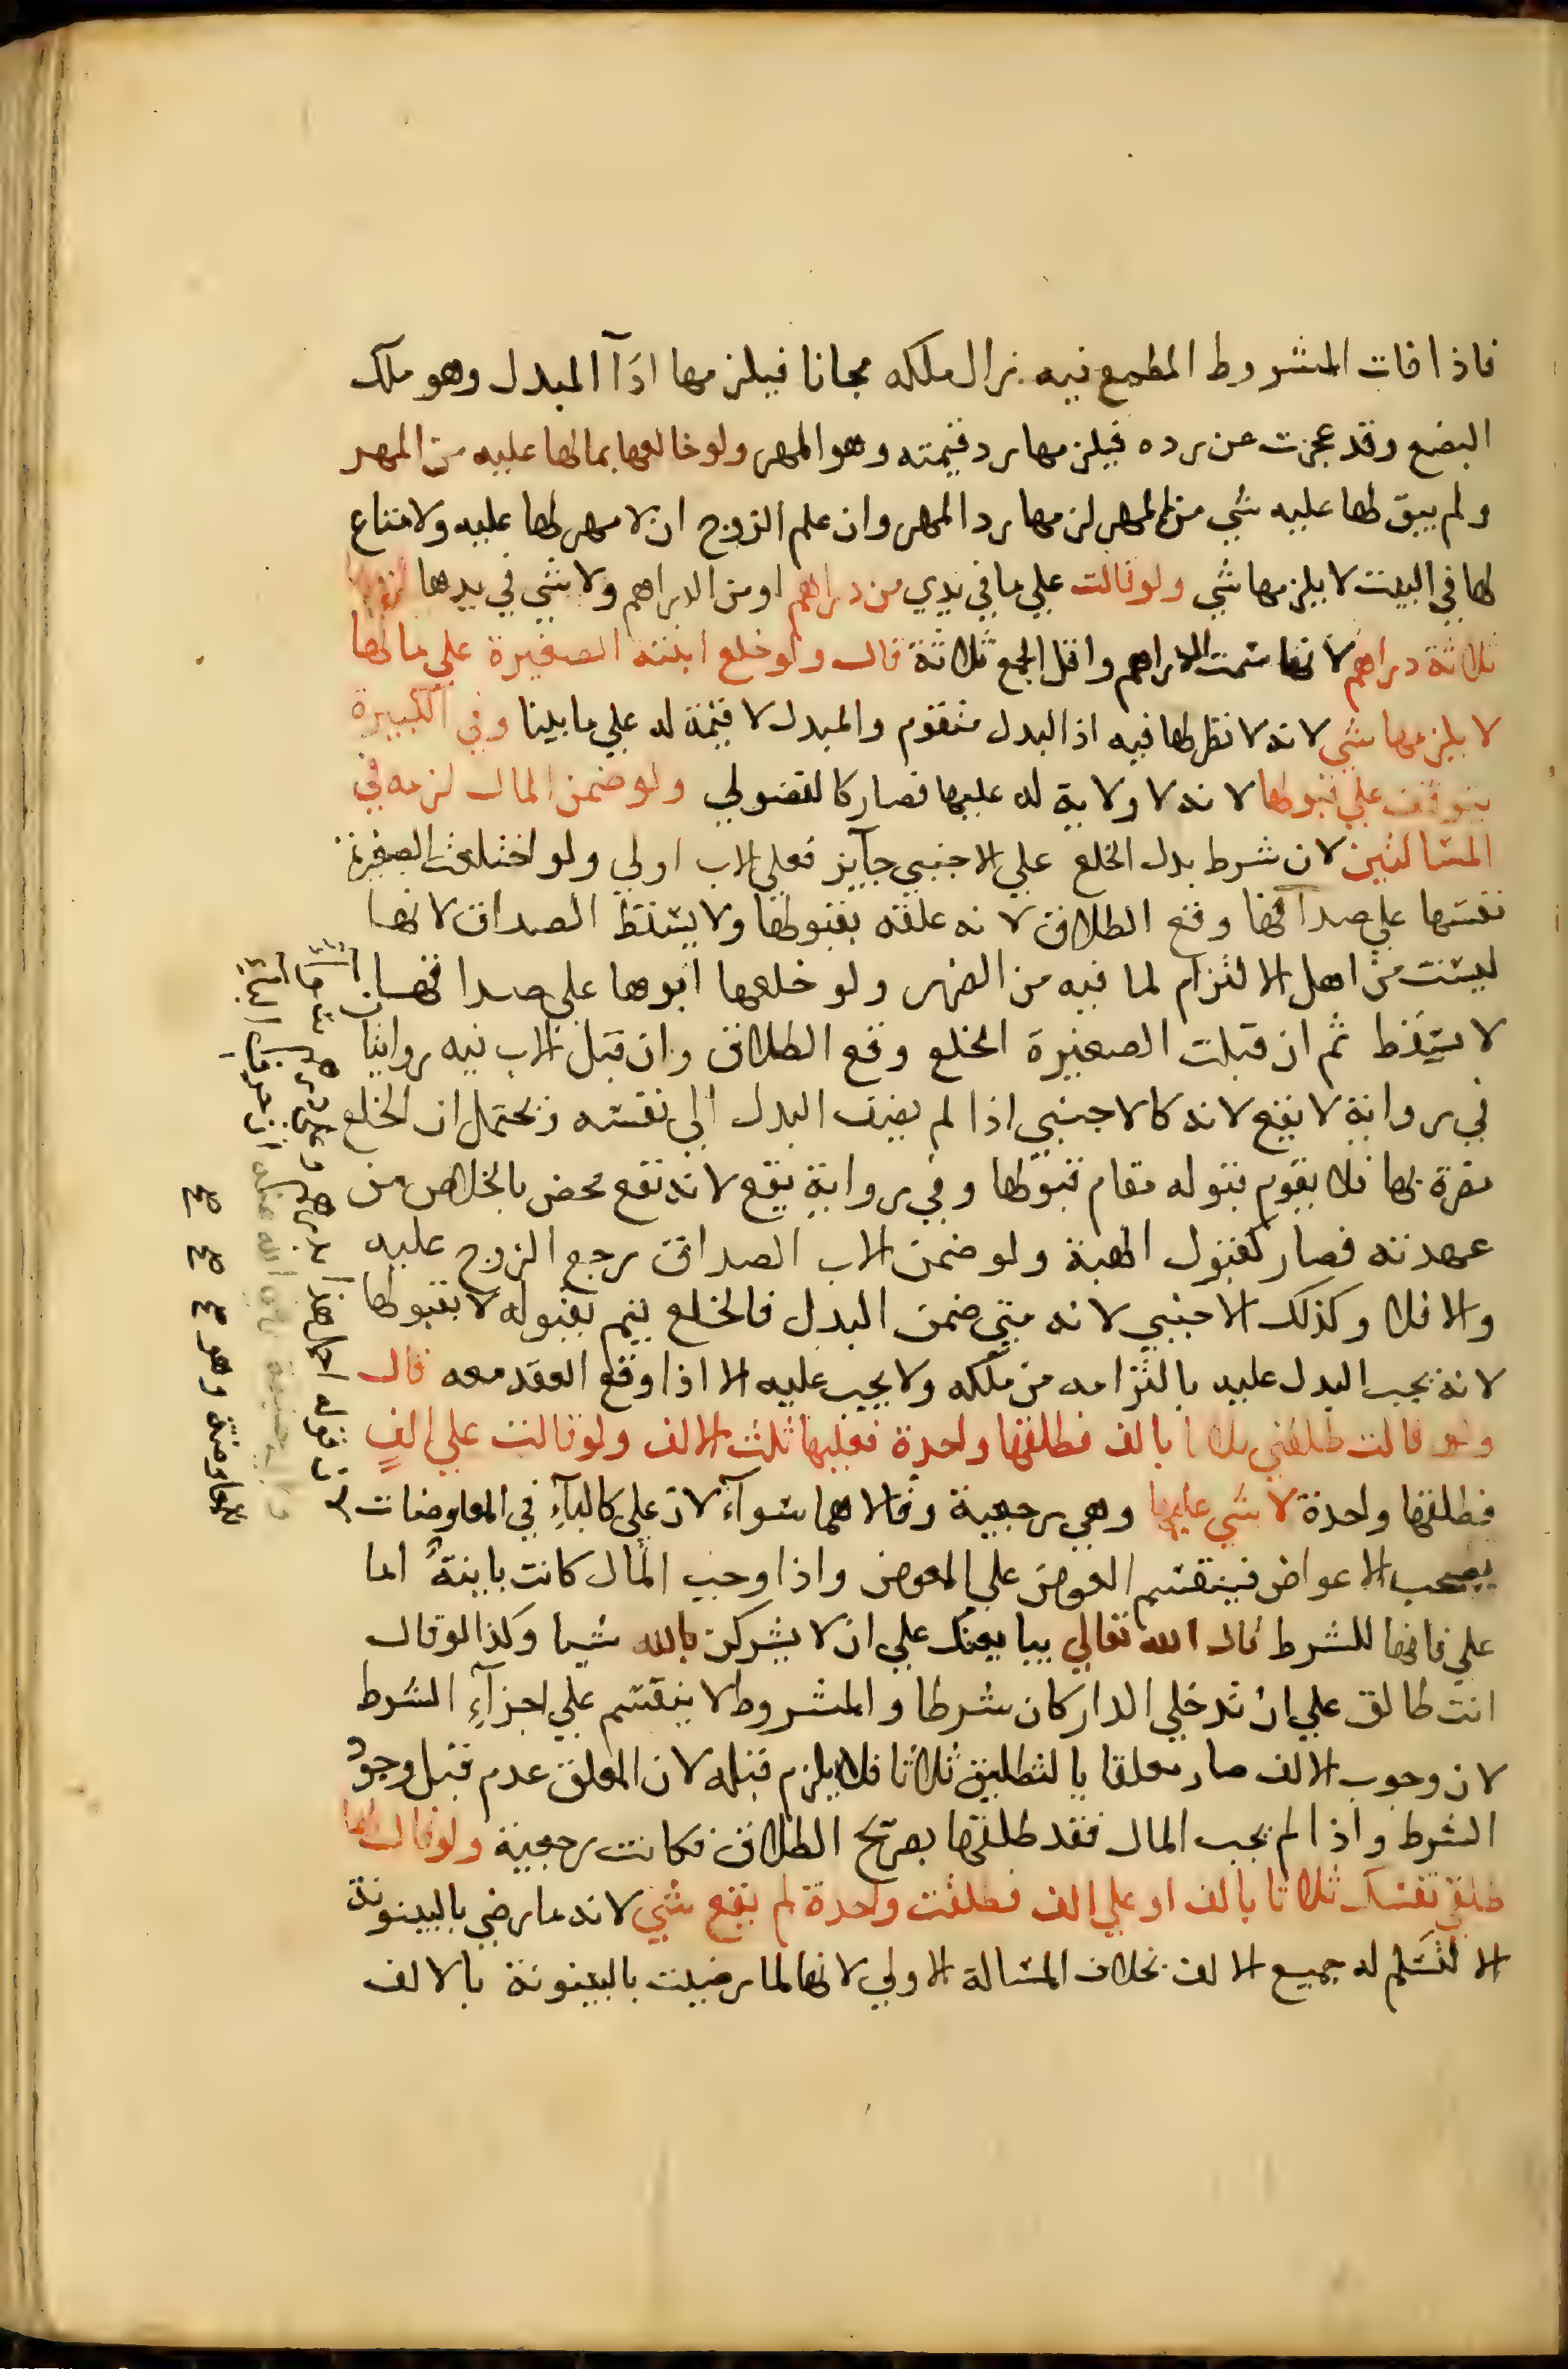 فاذا فات المشروط المطمع فيه زال ملكه مجانا فيلزمها ادآ المبدل وهو ملك
البضع وقد عجزت عن رده فيلزمها رد قيمته وهو المهر ولو خالعها بمالها عليه من المهر
ولم يبق لها عليه شي من المهر لزمها رد المهر وان علم الزوج ان لا مهر لها عليه ولا متاع
لها في البيت لا يلزمها شي ولو قالت علي ما في يدي من دراهم او من الدراهم ولا شي في يدها لزمها
ثلاثة دراهم لانها سمت الدراهم واقل الجمع ثلاثة قال ولو خلع ابنته الصغيرة علي مالها
لا يلزمها شي لانه لا نظر لها فيه اذ البدل متقوم والمبدل لا قيمة له علي ما بينا وفي الكبيرة
يتوقف علي قبولها لانه لا ولاية له عليها فصار كالفضولي ولو ضمن المال لزمه في
المسالتين لان شرط بدل الخلع علي الاجنبي جآيز فعلي الاب اولي ولو اختلعت الصغيرة
نفسها علي صداقها وقع الطلاق لانه علقه بقبولها ولا يسقط الصداق لانها
ليست من اهل الالتزام لما فيه من الضرر ولو خلعها ابوها علي صداقها
لا يسقط ثم ان قبلت الصغيرة الخلع وقع الطلاق وان قبل الاب فيه روايتا
في رواية لا يقع لانه كالاجنبي اذا لم يضف البدل الي نفسه ويحتمل ان الخلع
مضرة بها فلا يقوم قبوله مقام قبولها وفي رواية يقع لانه نفع محض بالخلاص من
عهدته فصار كقبول الهبة ولو ضمن الاب الصداق رجع الزوج عليه
والا فلا وكذلك الاجنبي لانه متي ضمن البدل فالخلع يتم بقبوله لا بقبولها
لانه يجب البدل عليه بالتزامه من ملكه ولا يجب عليه الا اذا وقع العقد معه قال
ولو قالت طلقني ثلاثا بالف فطلقها واحدة فعليها ثلث الالف ولو قالت علي الفٍ
فطلقها واحدة لا شي عليها وهي رجعية وقالا هما سوآء لان علي كالبآءِ في المعاوضات
يصحب الاعواض فينقسم العوض علي المعوض واذا وجب المال كانت باينةً اما
علي فانها للشرط قال الله تعالي يبايعنك علي ان لا يشركن بالله شيا وكذا لو قال
انت طالق علي ان تدخلي الدار كان شرطا والمشروط لا ينقسم علي اجزآءِ الشرط
لان وجوب الالف صار معلقا بالتطليق ثلاثا فلا يلزم قبله لان المعلق عدم قبل وجود
الشرط واذا لم يجب المال فقد طلقها بصريح الطلاق فكانت رجعية ولو قال لها
طلقي نفسك ثلاثا بالف او علي الف فطلقت واحدة لم يقع شي لانه ما رضي بالبينونة
الا لتسلم له جميع الالف بخلاف المسالة الاولي لانها لما رضيت بالبينونة بالالف